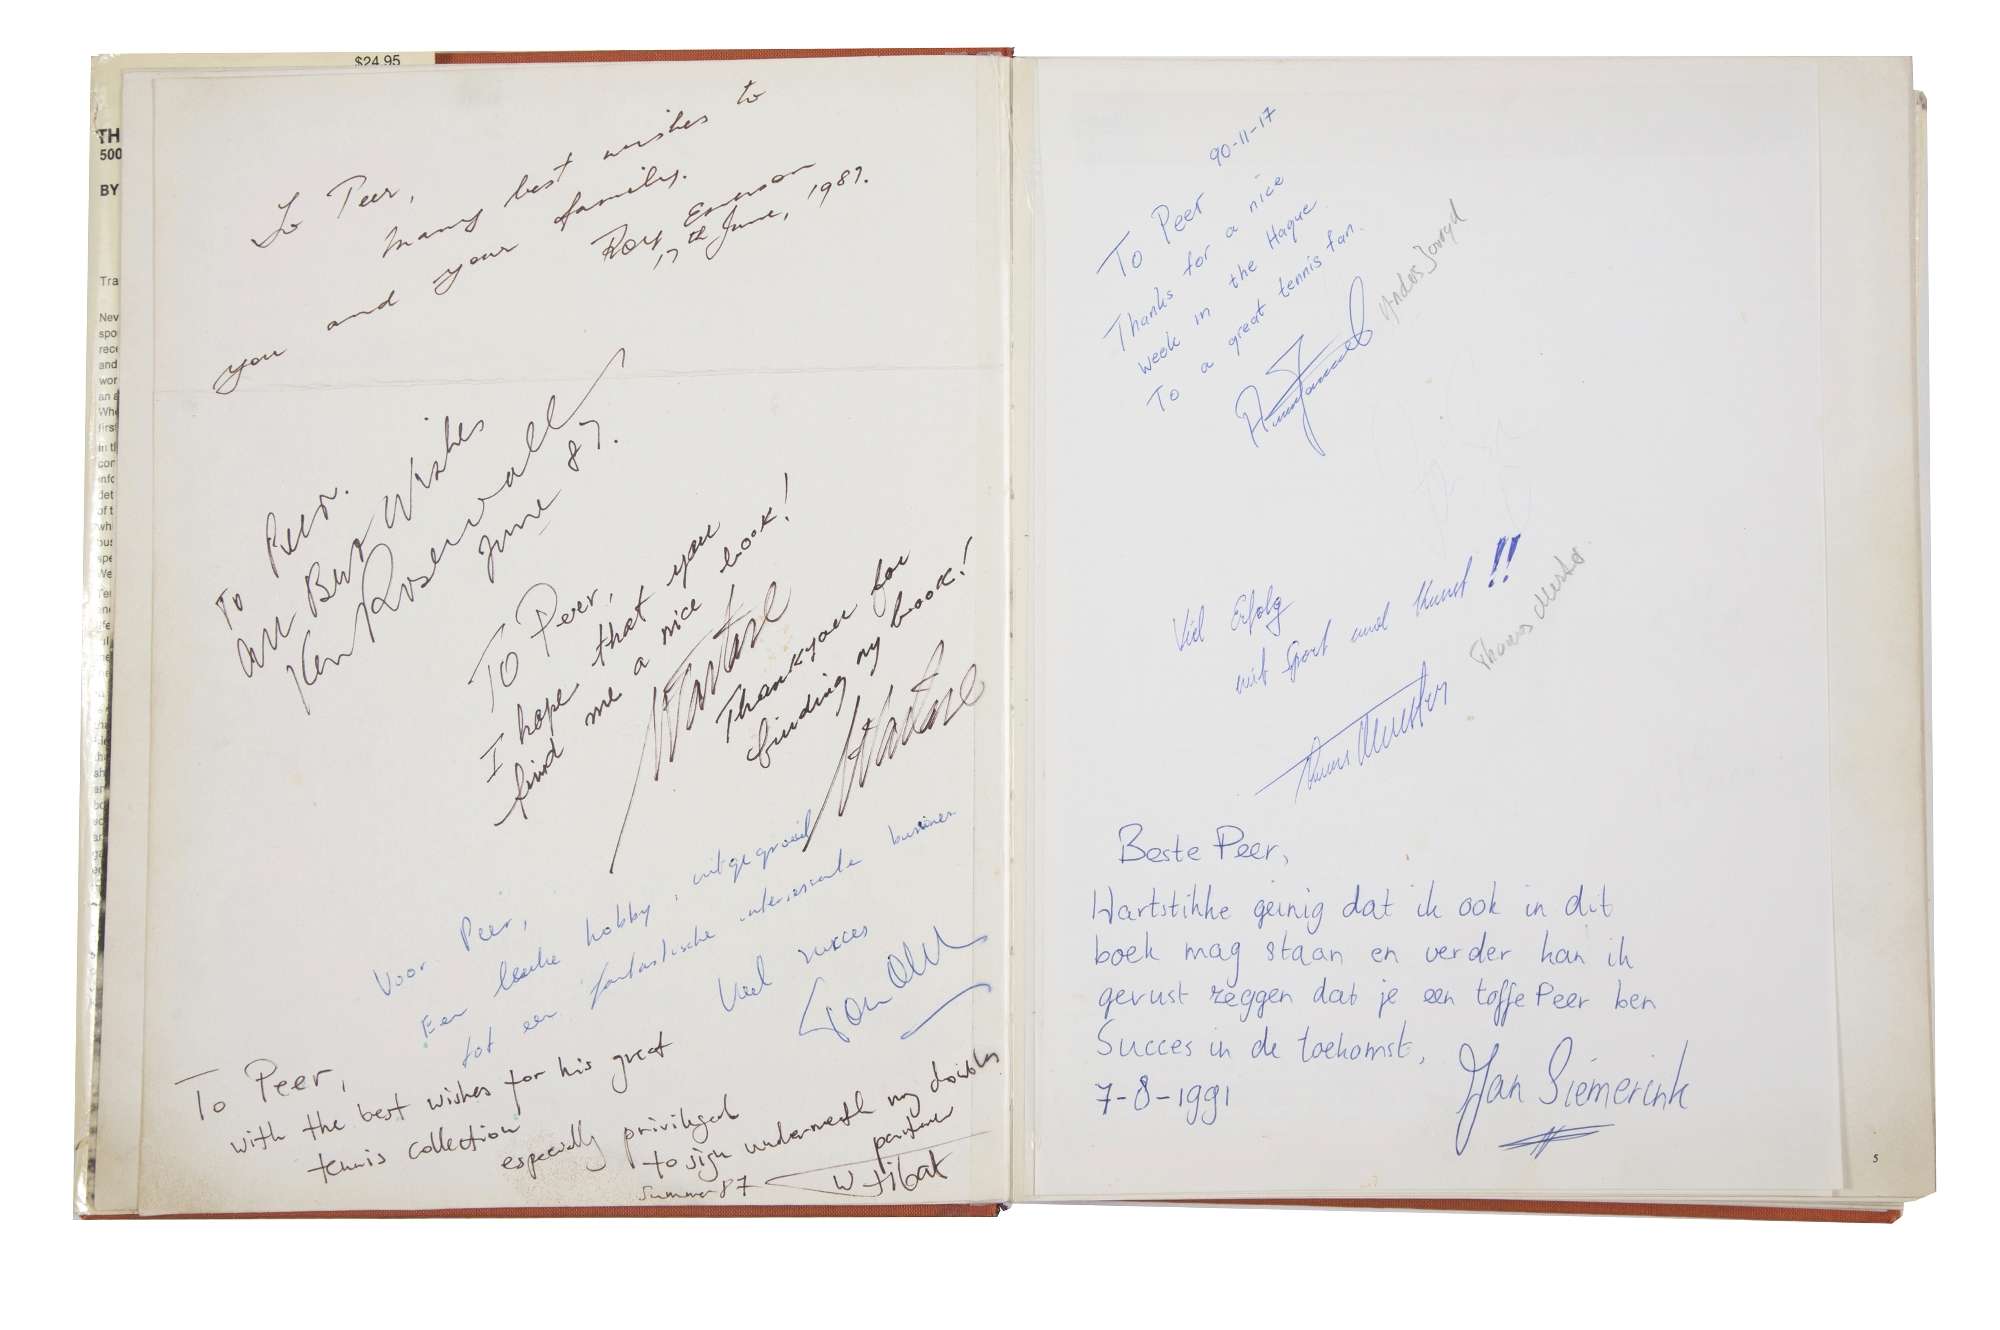 $24.95
TH
500
BY
Tra
Nev
spo
rece
and
wor
an a
Whe
first
To Peer,
many best wishes to
you and your family.
Roy Emerson
17th June, 1987.
To Peer.
All Best Wishes
Ken Rosewall
June 87.
To Peer,
I hope that you
find me a nice book!
Nastase
Thank you for
finding my book!
Nastase
Voor Peer,
Een leuke hobby, uitgegroeid
tot een fantastische interessante business
Veel succes
Tom Okker
To Peer,
with the best wishes for his great
tennis collection
especially privileged
to sign underneath my doubles
partner
Summer 87
W Fibak
90-11-17
To Peer
Thanks for a nice
week in the Hague
To a great tennis fan.
Anders Jarryd
Viel Erfolg
mit Sport und Kunst!!
Thomas Muster
Thomas Muster
Beste Peer,
Hartstikke geinig dat ik ook in dit
boek mag staan en verder kan ik
gerust zeggen dat je een toffe Peer ben
Succes in de toekomst,
7-8-1991
Jan Siemerink
5